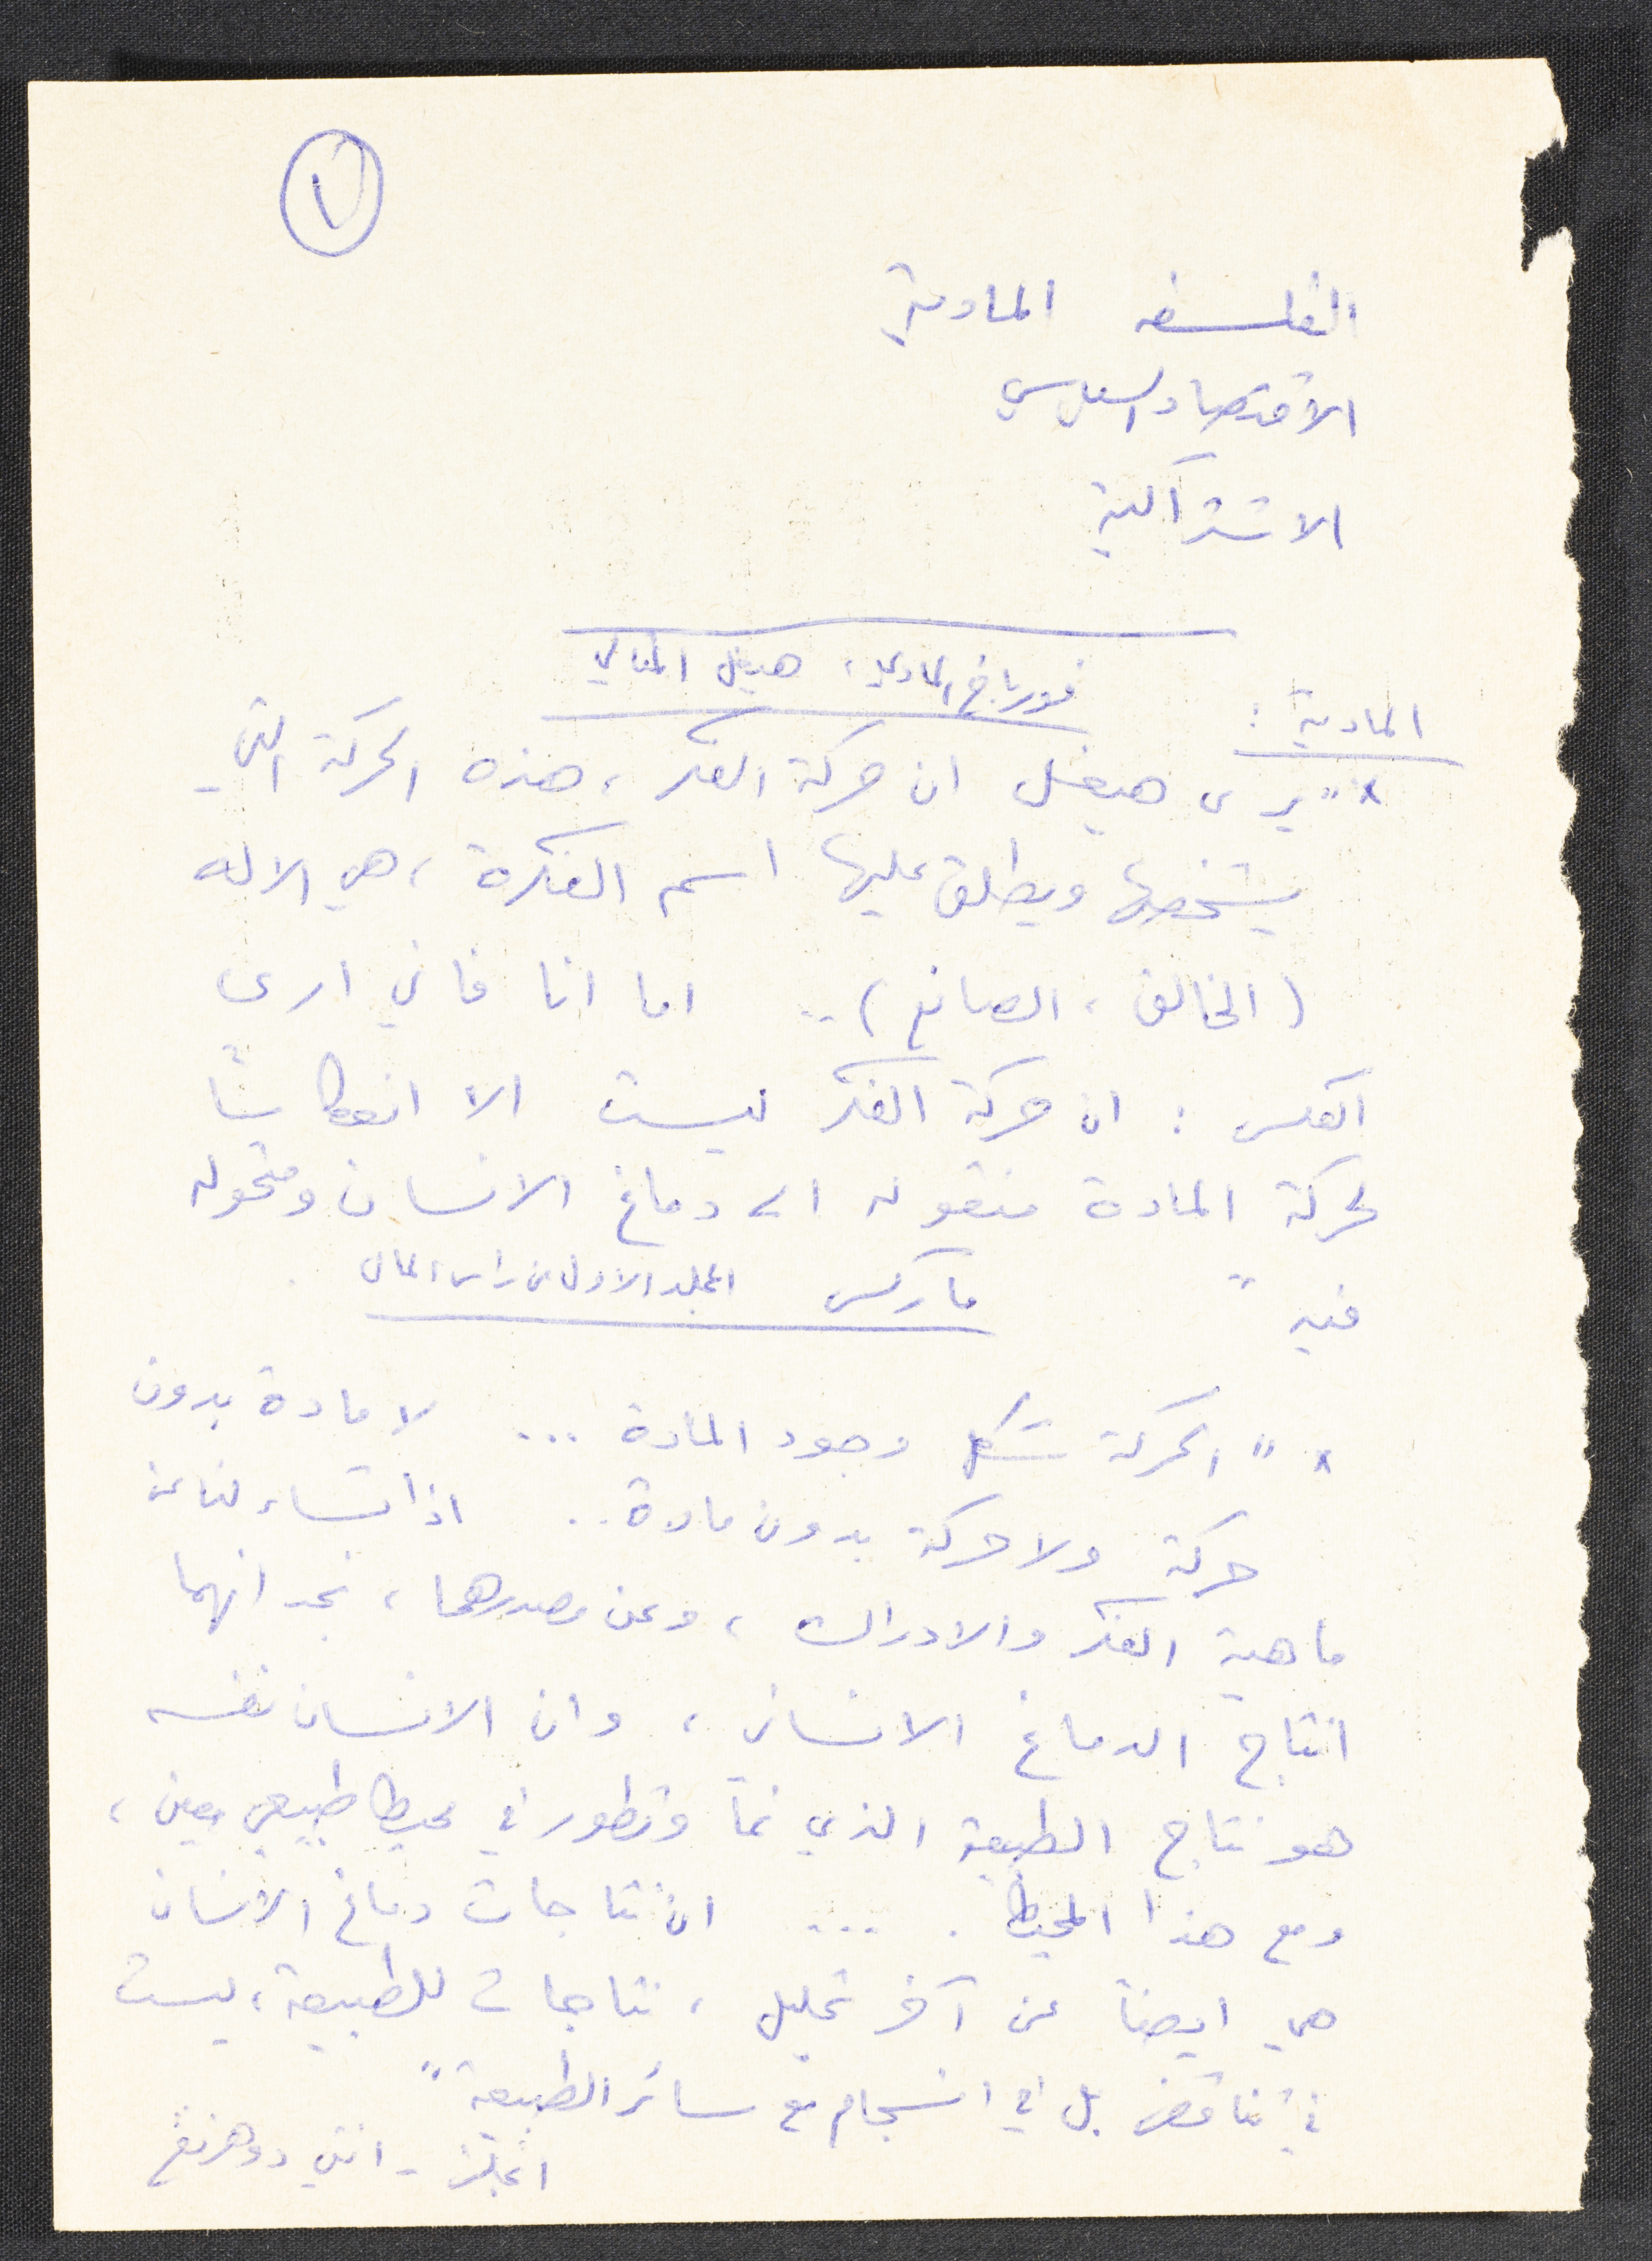 ١
الفلسفه المادية
الاقتصاد السياسي
الاشتراكية
فورباخ المادي، هيغل المثالي
المادية :
× " يرى هيغل ان حركة الفكر، هذه الحركة التي
يشخصها ويطلق عليها اسم الفكرة، هي الاله
(الخالق، الصانع) .. اما انا فاني ارى
العكس : ان حركة الفكر ليست الا انعكاسًا
لحركة المادة منقوله الى دماغ الانسان ومتحوله
فيه "
ماركس المجلد الاول من راس المال
× " الحركة شكل وجود المادة ... لا مادة بدون
حركة ولا حركة بدون مادة .. اذا تساءلنا عن
ماهية الفكر والادراك، وعن مصدرهما، نجد انهما
انتاج الدماغ الانساني، وان الانسان نفسه
هو نتاج الطبيعة الذي نمآ وتطور في محيط طبيعي معين،
ومع هذا المحيط . ... ان نتاجات دماغ الانسان
هي ايضاً عن آخر تحليل، نتاجات للطبيعة، ليست
في تناقض بل في انسجام مع سائر الطبيعة "
انجلز - انتي دوهرنغ